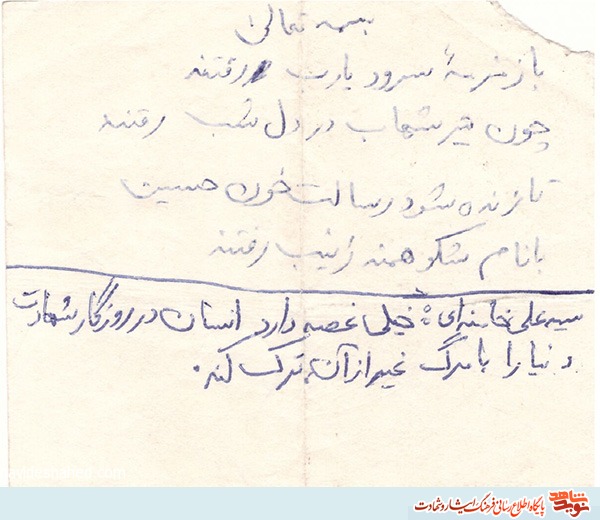 بسمه تعالی
با زمزمهٔ سرود یارب رفتند
چون تیر شهاب در دل شب رفتند
تا زنده شود رسالت خون حسین
با نام شکوهمند زینب رفتند
سید علی خامنه‌ای: خیلی غصه دارد انسان در روزگار شهادت
دنیا را با مرگ غیر از آن ترک کند.
نوید شاهد
پایگاه اطلاع رسانی فرهنگ ایثار و شهادت